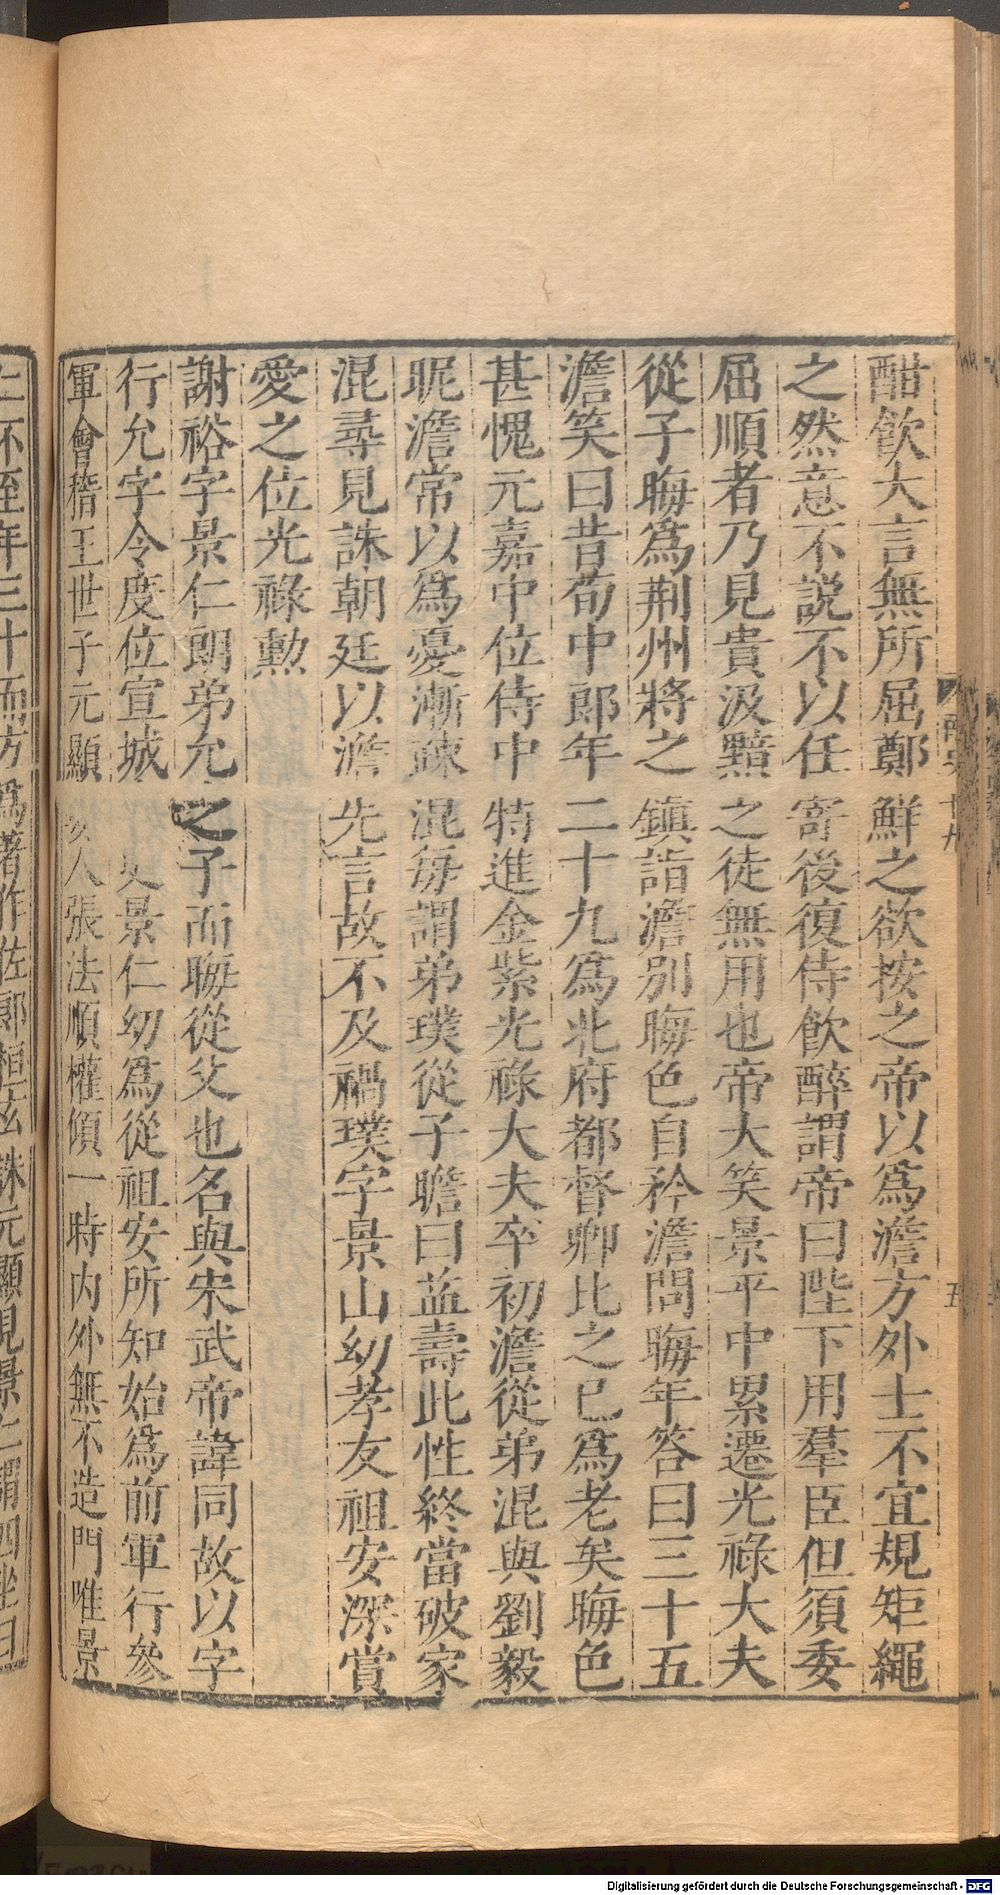 酣飲大言無所屈鄭鮮之欲按之帝以爲澹方外士不宜規矩繩
之然意不說不以任寄後復侍飲醉謂帝曰陛下用羣臣但須委
屈順者乃見貴汲黯之徒無用也帝大笑景平中累遷光祿大夫
從子晦爲荆州將之鎮詣澹別晦色自矜澹問晦年答曰三十五
澹笑曰昔荀中郎年二十九爲北府都督卿比之已爲老矣晦色
甚愧元嘉中位侍中特進金紫光祿大夫卒初澹從弟混與劉毅
昵澹常以爲憂漸疎混每謂弟璞從子瞻曰益壽此性終當破家
混尋見誅朝廷以澹先言故不及禍璞字景山幼孝友祖安深賞
愛之位光祿勲
謝裕字景仁朗弟允之子而晦從父也名與宋武帝諱同故以字
行允字令度位宣城史景仁幼爲從祖安所知始爲前軍行參
軍會稽王世子元顯人張法順權傾一時内外無不造門唯景
仁不至年三十而方爲著作佐郎桓玄誅元顯見景仁謂四坐曰
五
Digitalisierung gefördert durch die Deutsche Forschungsgemeinschaft - DFG